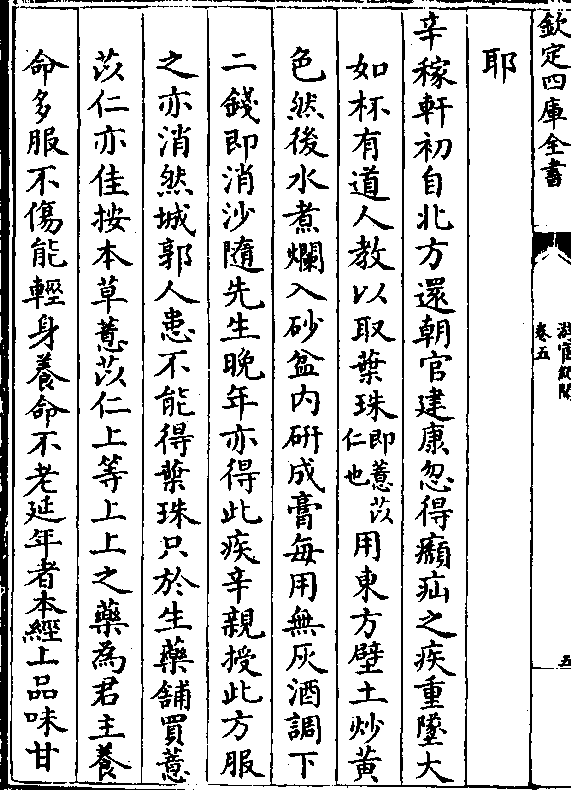 欽定四庫全書
游宦紀聞
卷五
五
耶
辛稼軒初自北方還朝官建康忽得癩疝之疾重墜大
如杯有道人教以取葉珠即薏苡仁也用東方壁土炒黃
色然後水煮爛入砂盆内研成膏每用無灰酒調下
二錢即消沙隨先生晚年亦得此疾辛親授此方服
之亦消然城郭人患不能得葉珠只於生藥舖買薏
苡仁亦佳按本草薏苡仁上等上上之藥為君主養
命多服不傷能輕身養命不老延年者本經上品味甘